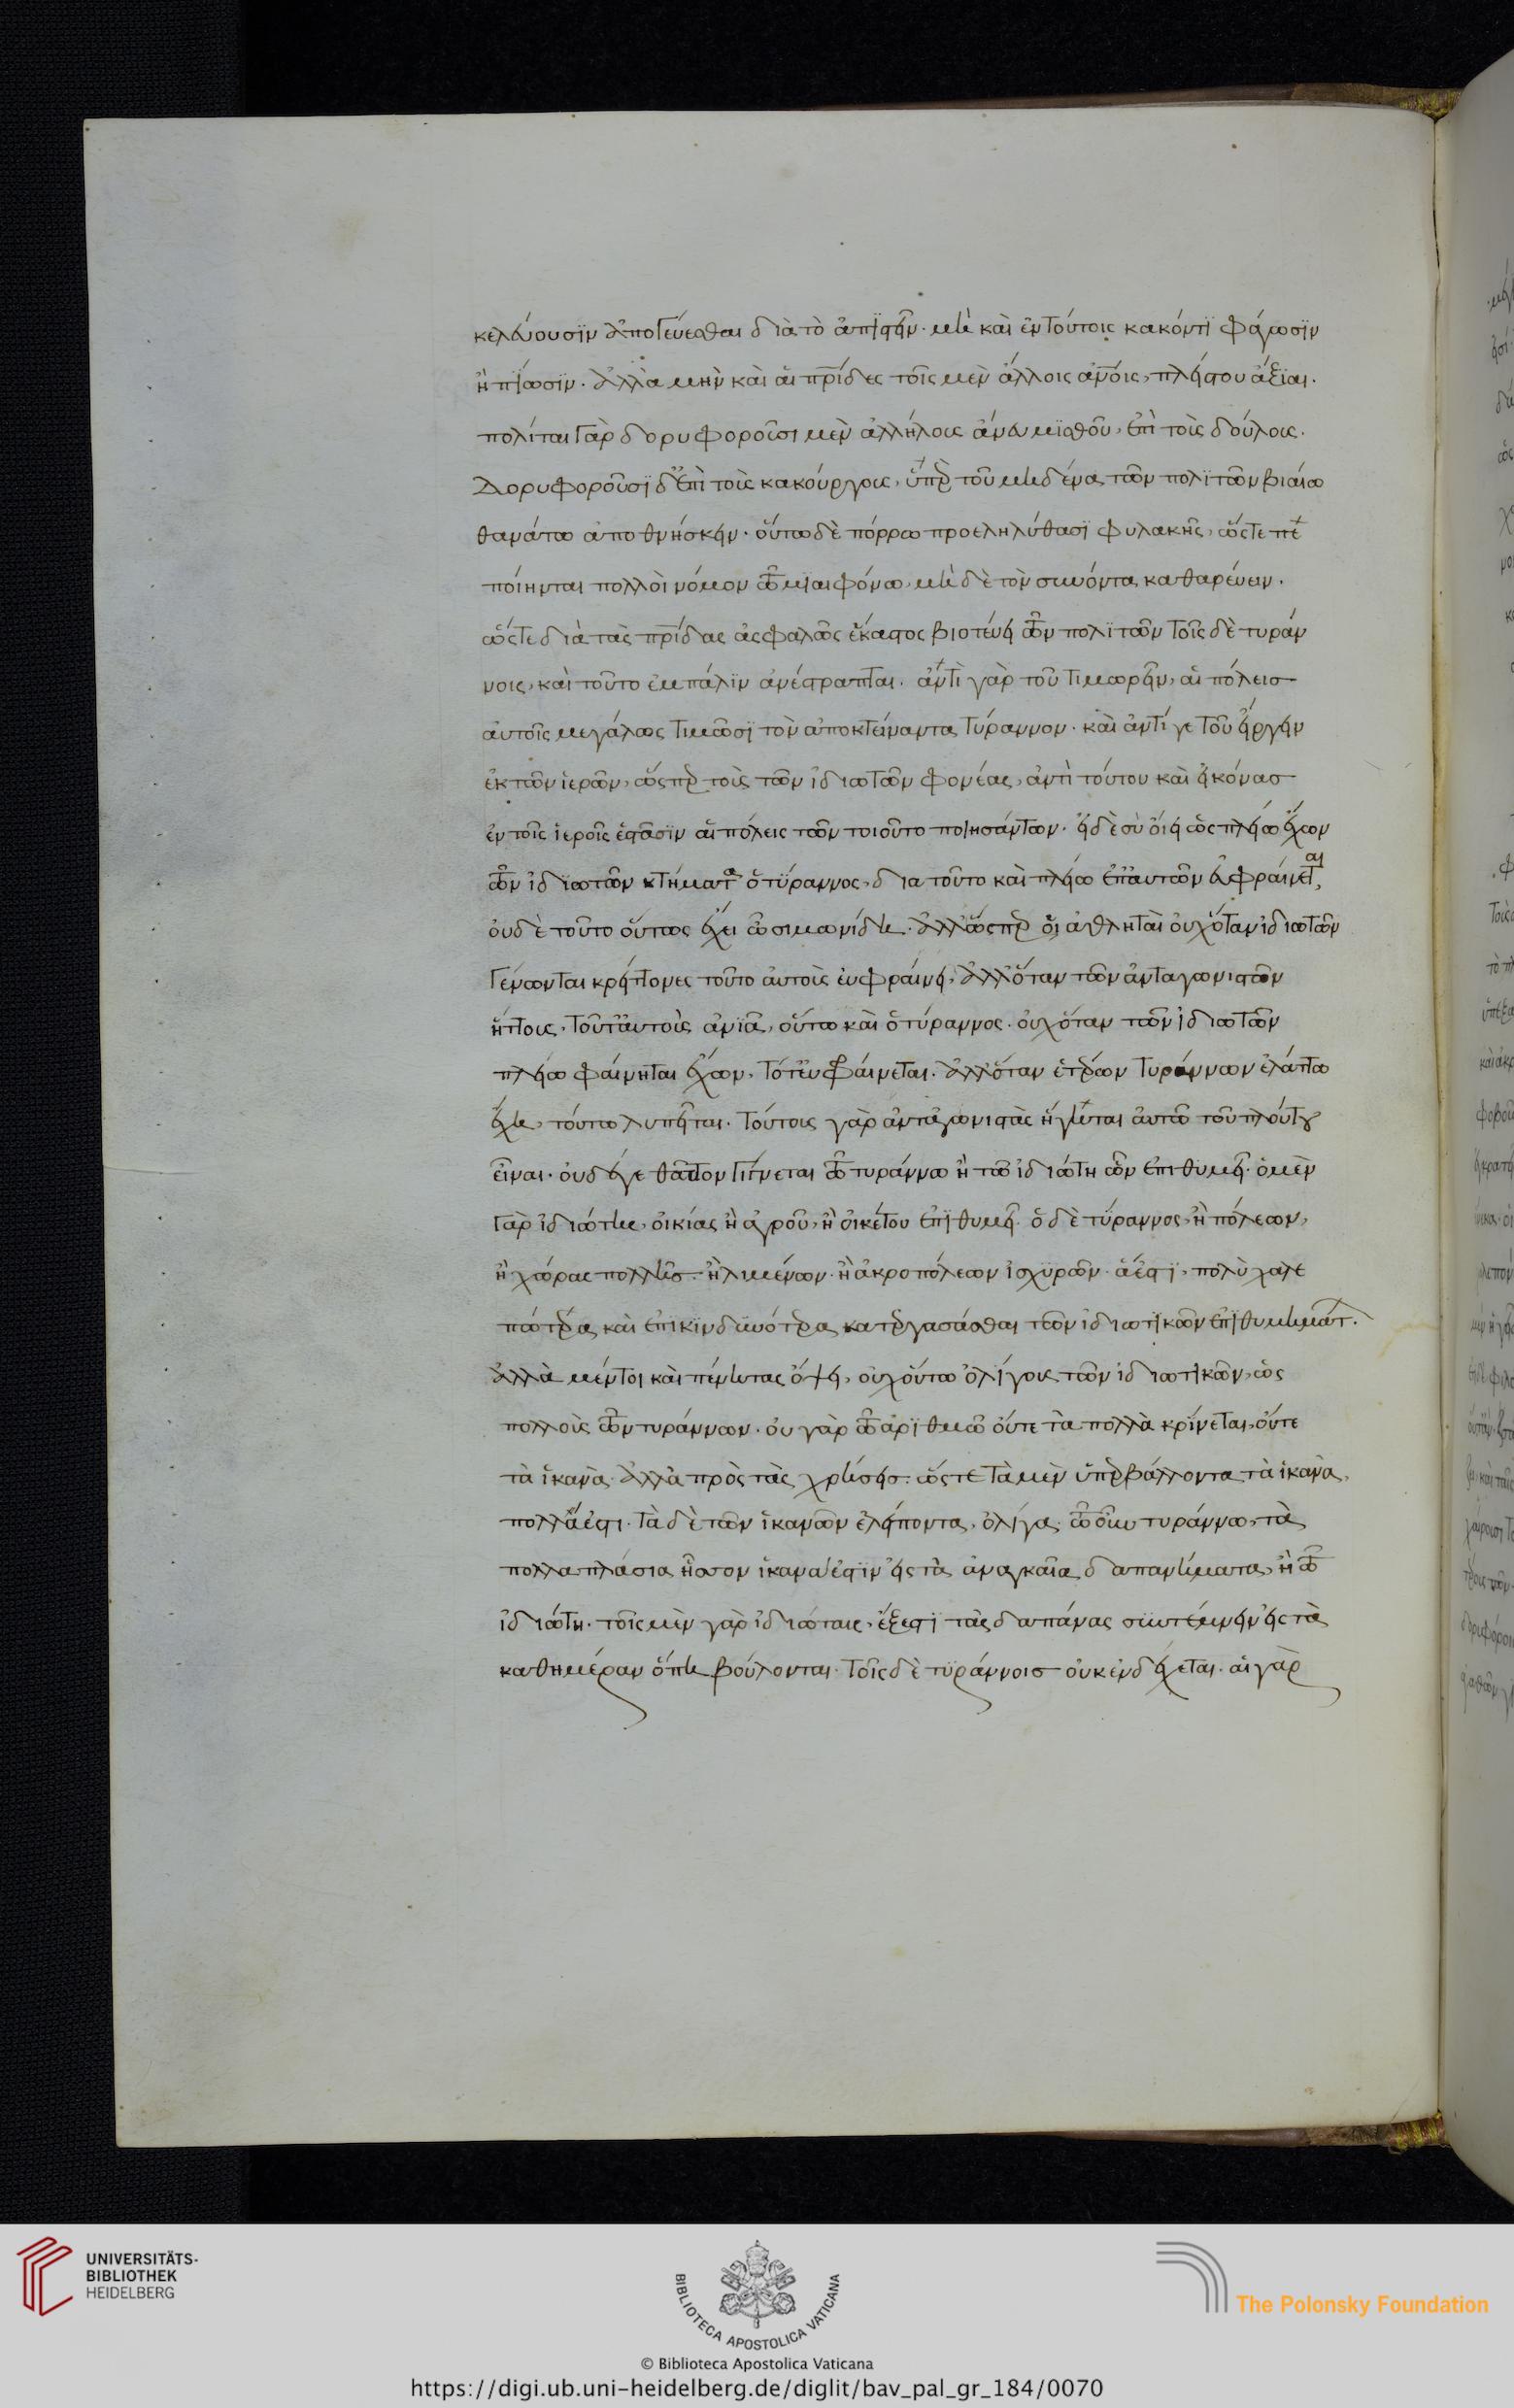 κελεύουσϊν ἀπογεύεσθαι διὰ τὸ ἀπιστεῖν· μὴ καὶ ἐν τούτοις κακόν τϊ φάγωσϊν
ἢ πίωσϊν. ἀλλὰ μὴν καὶ αἱ πρίδες τοῖς μὲν ἄλλοις ἀνοις, πλείστου ἄξϊαι.
πολῖται γὰρ δορυφοροῦσι μὲν ἀλλήλους ἄνευ μϊσθοῦ, ἐπὶ τοὺς δούλους.
Δορυφοροῦσϊ δ' ἐπὶ τοὺς κακούργους, ὑπὲρ τοῦ μηδένα τῶν πολϊτῶν βιαίω
θανάτω ἀποθνήσκειν. οὕτω δὲ πόρρω προεληλύθασϊ φυλακῆς, ὥστε πε
ποίηνται πολλοὶ νόμον τῶ μιαιφόνω, μὴ δὲ τὸν συνόντα καθαρεύειν.
ὥστε διὰ τὰς πρίδας ἀσφαλῶς ἕκαστος βιοτεύει τῶν πολϊτῶν τοῖς δὲ τυράν
νοις, καὶ τοῦτο ἔμπαλϊν ἀνέστραπται. ἀντὶ γὰρ τοῦ τιμωρεῖν, αἱ πόλεις
αὐτοῖς μεγάλως τιμῶσϊ τὸν ἀποκτείναντα τύραννον. καὶ ἀντί γε τοῦ εἴργειν
ἐκ τῶν ἱερῶν, ὥσπερ τοὺς τῶν ἰδιωτῶν φονέας, ἀντὶ τούτου καὶ εἰκόνας
ἐν τοῖς ἱεροῖς ἑστᾶσϊν αἱ πόλεις τῶν τοιοῦτο ποιησάντων. εἰ δὲ σὺ οἴει ὡς πλείω ἔχων
τῶν ἰδϊωτῶν κτήματα ὁ τύραννος, δια τοῦτο καὶ πλείω ἐπ' αὐτῶν εὐφραίνεται,
οὐδὲ τοῦτο οὕτως ἔχει ὦ σιμωνίδη. ἀλλ' ὥσπερ οἱ ἀθληταὶ οὐχ ὅταν ἰδιωτῶν
γένωνται κρείττονες τοῦτο αὐτοὺς εὐφραίνει, ἀλλ' ὅταν τῶν ἀνταγωνιστῶν
ἥττους, τοῦτ' αὐτοὺς ἀνϊᾶ, οὕτω καὶ ὁ τύραννος. οὐχ ὅταν τῶν ἰδιωτῶν
πλείω φαίνηται ἔχων, τότ' εὐφραίνεται. ἀλλ' ὅταν ἑτέρων τυράννων ἐλάττω
ἔχη, τούτω λυπεῖται. τούτους γὰρ ἀνταγωνιστὰς ἡγεῖται αὐτῶ τοῦ πλούτου
εἶναι. οὐδέ γε θᾶττον γίγνεται τῶ τυράννω ἢ τῶ ἰδιώτη ὧν ἐπιθυμεῖ. ὁ μὲν
γὰρ ἰδιώτης, οἰκίας ἢ ἀγροῦ, ἢ οἰκέτου ἐπϊθυμεῖ. ὁ δὲ τύραννος, ἢ πόλεων,
ἢ χώρας πολλῆς. ἢ λιμένων. ἢ ἀκροπόλεων ἰσχϋρῶν. ἅ ἐστϊ, πολὺ χαλε
πώτερα καὶ ἐπϊκϊνδϋνότερα κατεργάσασθαι τῶν ἰδιωτϊκῶν ἐπϊθυμημάτ.
ἀλλὰ μέντοι καὶ πένητας ὄψει, οὐχ οὕτω ὀλίγους τῶν ἰδιωτϊκῶν, ὡς
πολλοὺς τῶν τυράννων. οὐ γὰρ τῶ ἀρϊθμῶ οὔτε τὰ πολλὰ κρίνεται, οὔτε
τὰ ἱκανὰ. ἀλλὰ πρὸς τὰς χρήσεις. ὥστε τὰ μὲν ὑπερβάλλοντα τὰ ἱκανὰ,
πολλά ἐστι. τὰ δὲ τῶν ἱκανῶν ἐλείποντα, ὀλίγα. τῶ οὖν τυράννω, τὰ
πολλαπλάσια ἧσσον ἱκανά ἐστϊν εἰς τὰ ἀναγκαῖα δαπανήματα, ἢ τῶ
ἰδιώτη. τοῖς μὲν γὰρ ἰδιώταις, ἔξεστϊ τὰς δαπάνας συντέμνειν εἰς τὰ
καθημέραν ὅπη βούλονται. τοῖς δὲ τϋράννοις οὐκ ἐνδέχεται. αἱ γὰρ
UNIVERSITÄTS-
BIBLIOTHEK
HEIDELBERG
BIBLIOTECA APOSTOLICA VATICANA
The Polonsky Foundation
© Biblioteca Apostolica Vaticana
https://digi.ub.uni-heidelberg.de/diglit/bav_pal_gr_184/0070